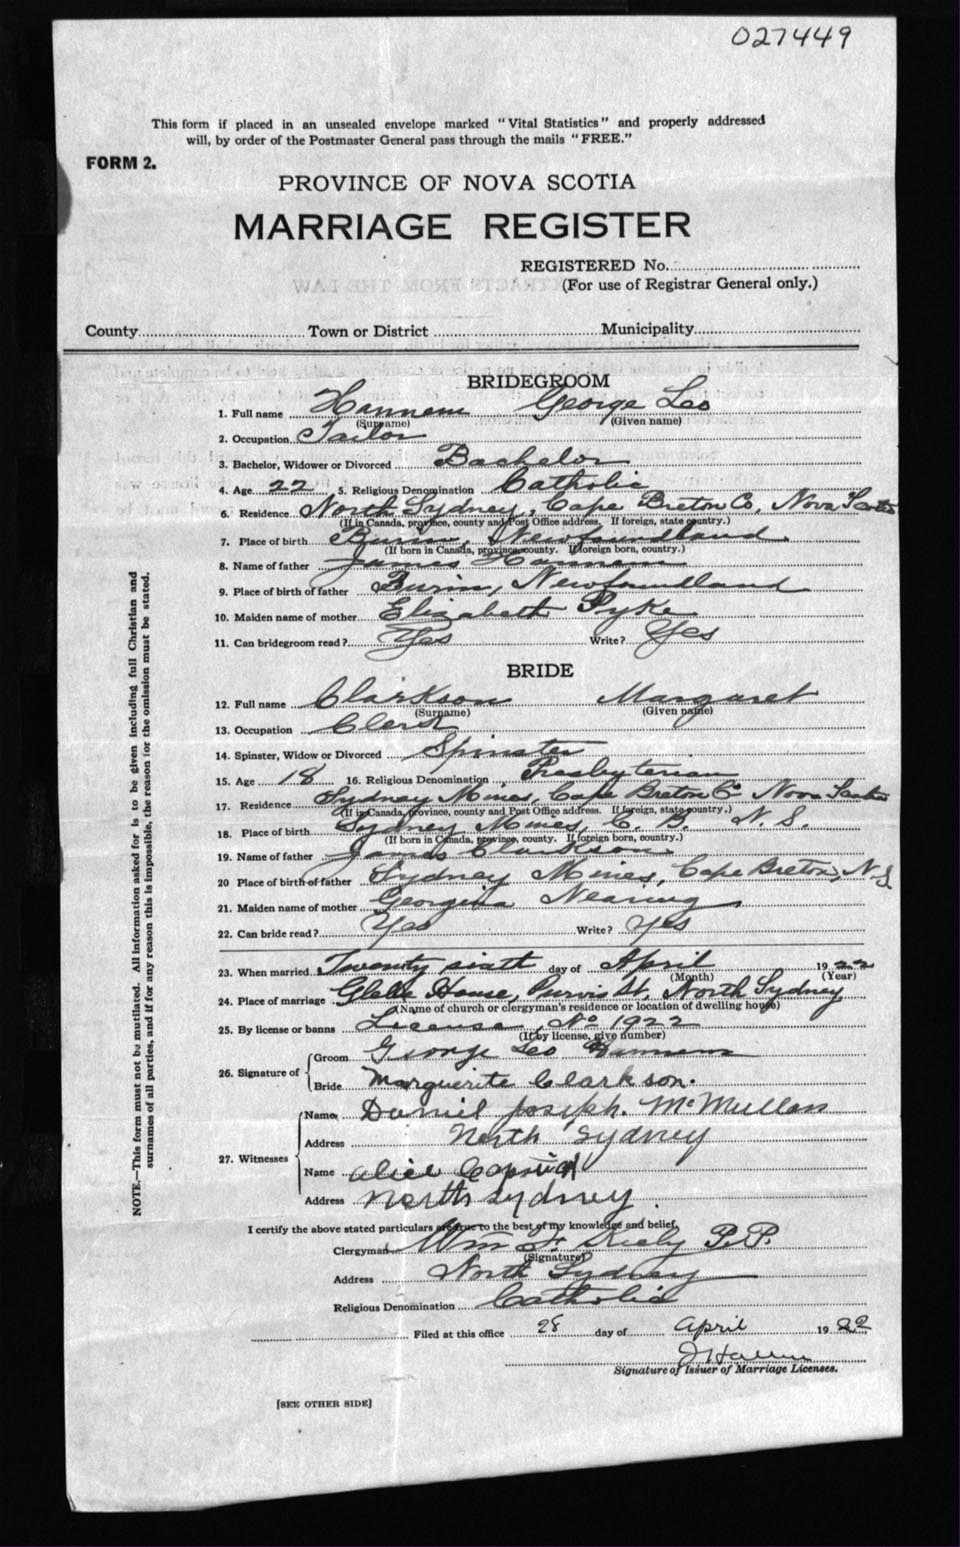 027449
This form if placed in an unsealed envelope marked "Vital Statistics" and properly addressed
will, by order of the Postmaster General pass through the mails "FREE."
FORM 2.
PROVINCE OF NOVA SCOTIA
MARRIAGE REGISTER
REGISTERED No.
(For use of Registrar General only.)
County Town or District Municipality
BRIDEGROOM
1. Full name Hannem George Leo
(Surname) (Given name)
2. Occupation Tailor
3. Bachelor, Widower or Divorced Bachelor
4. Age 22 5. Religious Denomination Catholic
6. Residence North Sydney, Cape Breton Co, Nova Scotia
(If in Canada, province, county and Post Office address. If foreign, state country.)
7. Place of birth Burin, Newfoundland
(If born in Canada, province, county. If foreign born, country.)
8. Name of father James Hannem
9. Place of birth of father Burin, Newfoundland
10. Maiden name of mother Elizabeth Pyke
11. Can bridegroom read? Yes Write? Yes
BRIDE
12. Full name Clarkson Margaret
(Surname) (Given name)
13. Occupation Clerk
14. Spinster, Widow or Divorced Spinster
15. Age 18 16. Religious Denomination Presbyterian
17. Residence Sydney Mines, Cape Breton Co Nova Scotia
(If in Canada, province, county and Post Office address. If foreign, state country.)
18. Place of birth Sydney Mines, C. B. N. S.
(If born in Canada, province, county. If foreign born, country.)
19. Name of father James Clarkson
20 Place of birth of father Sydney Mines, Cape Breton, N.S
21. Maiden name of mother Georgina Nearing
22. Can bride read? Yes Write? Yes
23. When married Twenty sixth day of April 1922
(Month) (Year)
24. Place of marriage Glebe House, Purvis St, North Sydney
(Name of church or clergyman's residence or location of dwelling house)
25. By license or banns License, No 1922
(If by license, give number)
26. Signature of Groom George Leo Hannem
Bride Marguerite Clarkson.
27. Witnesses Name Daniel Joseph. McMullan
Address North Sydney
Name Alice
Address North Sydney.
I certify the above stated particulars are true to the best of my knowledge and belief.
Clergyman Wm F. Kiely P.P.
(Signature)
Address North Sydney
Religious Denomination Catholic
Filed at this office 28 day of April 1922
Signature of Issuer of Marriage Licenses.
[SEE OTHER SIDE]
NOTE.—This form must not be mutilated. All information asked for is to be given including full Christian and
surnames of all parties, and if for any reason this is impossible, the reason for the omission must be stated.